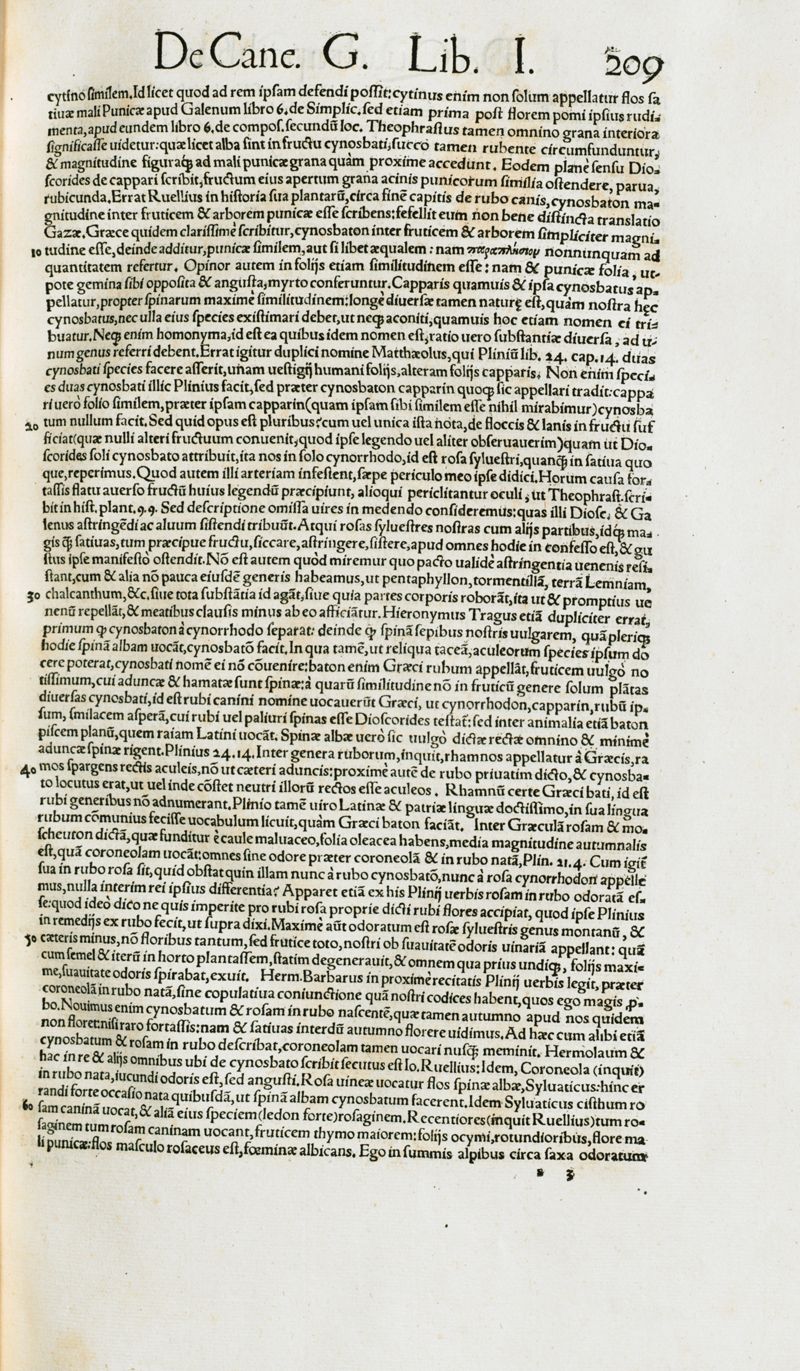 De Cane. G. Lib. I. 209
cytino ſimilem. Id licet quod ad rem ipſam defendi poſsit: cytinus enim non ſolum appellatur flos ſa
tiuæ mali Punicæ apud Galenum libro 6. de Simplic. ſed etiam prima poſt florem pomi ipſius rudi-
menta, apud eundem libro 6. de compoſ. ſecundũ loc. Theophraſtus tamen omnino grana interiora
ſignificaſſe uidetur: quæ licet alba ſint in fructu cynosbati, ſucco tamen rubente circumfunduntur,
& magnitudine figuraq́; ad mali punicæ grana quàm proxime accedunt. Eodem planè ſenſu Dio-
ſcorides de cappari ſcribit, fructum eius apertum grana acinis punicorum ſimilia oſtendere, parua,
rubicunda. Errat Ruellius in hiſtoria ſua plantarũ, circa finẽ capitis de rubo canis, cynosbaton ma-
gnitudine inter fruticem & arborem punicæ eſſe ſcribens: fefellit eum non bene diſtincta translatio
Gazæ. Græce quidem clariſsimè ſcribitur, cynosbaton inter fruticem & arborem ſimpliciter magni-
10 tudine eſſe, deinde additur, punicæ ſimilem, aut ſi libet æqualem: nam παραπλήσιον nonnunquam ad
quantitatem refertur. Opinor autem in folijs etiam ſimilitudinem eſſe: nam & punicæ folia, ut-
pote gemina ſibi oppoſita & anguſta, myrto conferuntur. Capparis quamuis & ipſa cynosbatus ap-
pellatur, propter ſpinarum maximè ſimilitudinem: longè diuerſæ tamen naturę eſt, quàm noſtra hęc
cynosbatus, nec ulla eius ſpecies exiſtimari debet, ut neq; aconiti, quamuis hoc etiam nomen ei tri-
buatur. Neq; enim homonyma, id eſt ea quibus idem nomen eſt, ratio uero ſubſtantiæ diuerſa, ad u-
num genus referri debent. Errat igitur duplici nomine Matthæolus, qui Pliniũ lib. 24. cap. 14. duas
cynosbati ſpecies facere aſſerit, unam ueſtigij humani folijs, alteram folijs capparis. Non enim ſpeci-
es duas cynosbati illic Plinius facit, ſed præter cynosbaton capparin quoq; ſic appellari tradit: cappa
ri uerò folio ſimilem, præter ipſam capparin (quam ipſam ſibi ſimilem eſſe nihil mirabimur) cynosba
20 tum nullum facit. Sed quid opus eſt pluribus? cum uel unica iſta nota, de floccis & lanis in fructu ſuf
ficiat (quæ nulli alteri fructuum conuenit, quod ipſe legendo uel aliter obſeruauerim) quam ut Dio-
ſcorides ſoli cynosbato attribuit, ita nos in ſolo cynorrhodo, id eſt roſa ſylueſtri, quanq̃ in ſatiua quo
que, reperimus. Quod autem illi arteriam infeſtent, ſæpe periculo meo ipſe didici. Horum cauſa for-
taſsis flatu auerſo fructũ huius legendũ præcipiunt, alioqui periclitantur oculi, ut Theophraſt. ſcri-
bit in hiſt. plant. 9.9. Sed deſcriptione omiſſa uires in medendo conſideremus: quas illi Dioſc. & Ga
lenus aſtringẽdi ac aluum ſiſtendi tribuũt. Atqui roſas ſylueſtres noſtras cum alijs partibus, idq́; ma-
gis q̃ ſatiuas, tum præcipue fructu, ſiccare, aſtringere, ſiſtere, apud omnes hodie in confeſſo eſt, & gu
ſtus ipſe manifeſto oſtendit. Nõ eſt autem quòd miremur quo pacto ualidè aſtringentia uenenis reſi-
ſtant, cum & alia nõ pauca eiuſdẽ generis habeamus, ut pentaphyllon, tormentillã, terrã Lemniam,
30 chalcanthum, &c. ſiue tota ſubſtãtia id agãt, ſiue quia partes corporis roborãt, ita ut & promptius ue
nenũ repellãt, & meatibus clauſis minus ab eo afficiãtur. Hieronymus Tragus etiã dupliciter errat,
primum ꝙ cynosbaton à cynorrhodo ſeparat: deinde ꝙ ſpinã ſepibus noſtris uulgarem, quã pleriq;
hodie ſpinã albam uocãt, cynosbatõ facit. In qua tamẽ, ut reliqua taceã, aculeorum ſpecies ipſum do
cere poterat, cynosbati nomẽ ei nõ cõuenire: baton enim Græci rubum appellãt, fruticem uulgò no
tiſsimum, cui aduncæ & hamatæ ſunt ſpinæ: à quarũ ſimilitudine nõ in fruticũ genere ſolum plãtas
diuerſas cynosbati, id eſt rubi canini nomine uocauerũt Græci, ut cynorrhodon, capparin, rubũ ip-
ſum, ſmilacem aſperã, cui rubi uel paliuri ſpinas eſſe Dioſcorides teſtat͛: ſed inter animalia etiã baton
piſcem planũ, quem raiam Latini uocãt. Spinæ albæ uerò ſic uulgò dictæ rectæ omnino & minimè
aduncæ ſpinæ rigent. Plinius 24.14. Inter genera ruborum, inquit, rhamnos appellatur à Græcis, ra
40 mos ſpargens rectis aculeis, nõ ut cæteri aduncis: proximè autẽ de rubo priuatim dicto, & cynosba-
to locutus erat, ut uel inde cõſtet neutri illorũ rectos eſſe aculeos. Rhamnũ certe Græci bati, id eſt
rubi generibus nõ adnumerant. Plinio tamẽ uiro Latinæ & patriæ linguæ doctiſsimo, in ſua lingua
rubum cõmunius feciſſe uocabulum licuit, quàm Græci baton faciãt. Inter Græculã roſam & mo-
ſcheuton dictã, quæ funditur è caule maluaceo, folia oleacea habens, media magnitudine autumnalis
eſt, quã coroneolam uocãt: omnes ſine odore præter coroneolã & in rubo natã, Plin. 21.4. Cum igit͛
ſua in rubo roſa ſit, quid obſtat quin illam nunc à rubo cynosbatõ, nunc à roſa cynorrhodon appellẽ
mus, nulla interim rei ipſius differentia? Apparet etiã ex his Plinij uerbis roſam in rubo odoratã eſ-
ſe: quod ideo dico ne quis imperite pro rubi roſa proprie dicti rubi flores accipiat, quod ipſe Plinius
in remedijs ex rubo fecit, ut ſupra dixi. Maximè aũt odoratum eſt roſæ ſylueſtris genus montanũ, &
50 cæteris minus, nõ floribus tantum, ſed frutice toto, noſtri ob ſuauitatẽ odoris uinariã appellant: quã
cum ſemel & iterũ in horto plantaſſem, ſtatim degenerauit, & omnem qua prius undiq;, folijs maxi-
me, ſuauitate odoris ſpirabat, exuit. Herm. Barbarus in proximè recitatis Plinij uerbis legit, præter
coroneolã in rubo natã, ſine copulatiua coniunctione quã noſtri codices habent, quos ego magis ꝓ-
bo. Nouimus enim cynosbatum & roſam in rubo naſcentẽ, quæ tamen autumno apud nos quidem
non floret: niſi raro fortaſsis: nam & ſatiuas interdũ autumno florere uidimus. Ad hæc cum alibi etiã
cynosbatum & roſam in rubo deſcribat, coroneolam tamen uocari nuſq̃ meminit. Hermolaum &
hac in re & alijs omnibus ubi de cynosbato ſcribit ſecutus eſt Io. Ruellius: Idem, Coroneola (inquit)
in rubo nata, iucundi odoris eſt, ſed anguſti. Roſa uineæ uocatur flos ſpinæ albæ, Syluaticus: hinc er
randi forte occaſio nata quibuſdã, ut ſpinã albam cynosbatum facerent. Idem Syluaticus ciſthum ro
60 ſam caninã uocat, & aliã eius ſpeciem (ledon forte) roſaginem. Recentiores (inquit Ruellius) tum ro-
ſaginem tum roſam caninam uocant, fruticem thymo maiorem: folijs ocymi, rotundioribus, flore ma
li punicæ: flos maſculo roſaceus eſt, fœminæ albicans. Ego in ſummis alpibus circa ſaxa odoratum
* 3